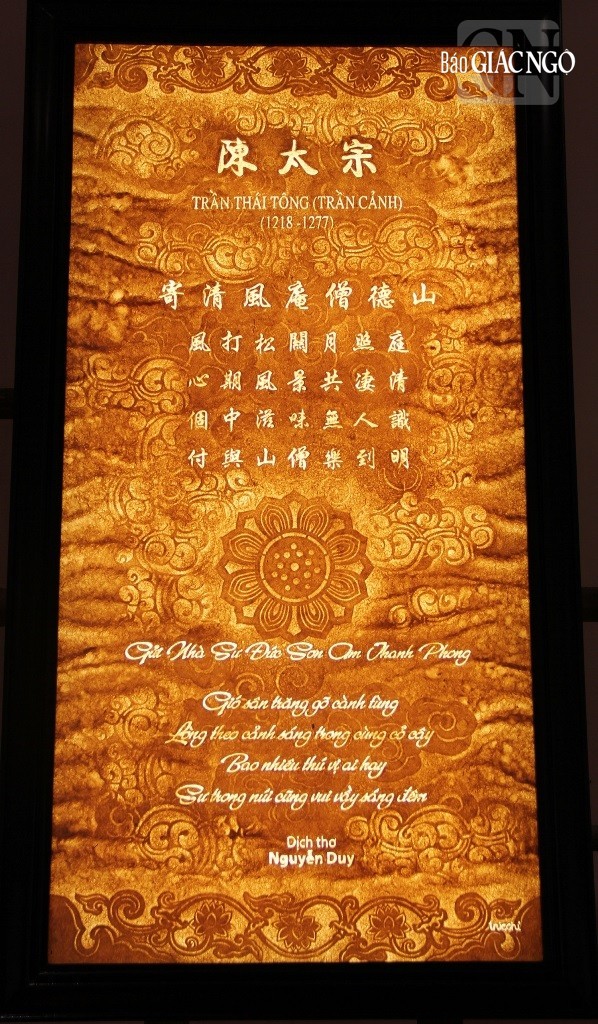 Báo GIÁC NGỘ
陳太宗
TRẦN THÁI TÔNG (TRẦN CẢNH)
(1218 -1277)
寄清風庵僧德山
風打松關月照庭
心期風景共淒清
個中滋味無人識
付與山僧樂到明
Gửi Nhà Sư Đức Sơn Am Thanh Phong
Gió sân trăng gõ cành tùng
Lòng theo cảnh sáng trong cùng cỏ cây
Bao nhiêu thú vị ai hay
Sư trong núi cũng vui vầy sáng đêm
Dịch thơ
Nguyễn Duy